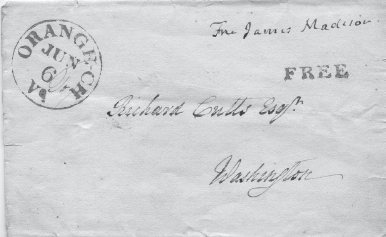 Free James Madison
ORANGE CH
JUN
6
VA
FREE
Richard Cutts Esqr.
Washington